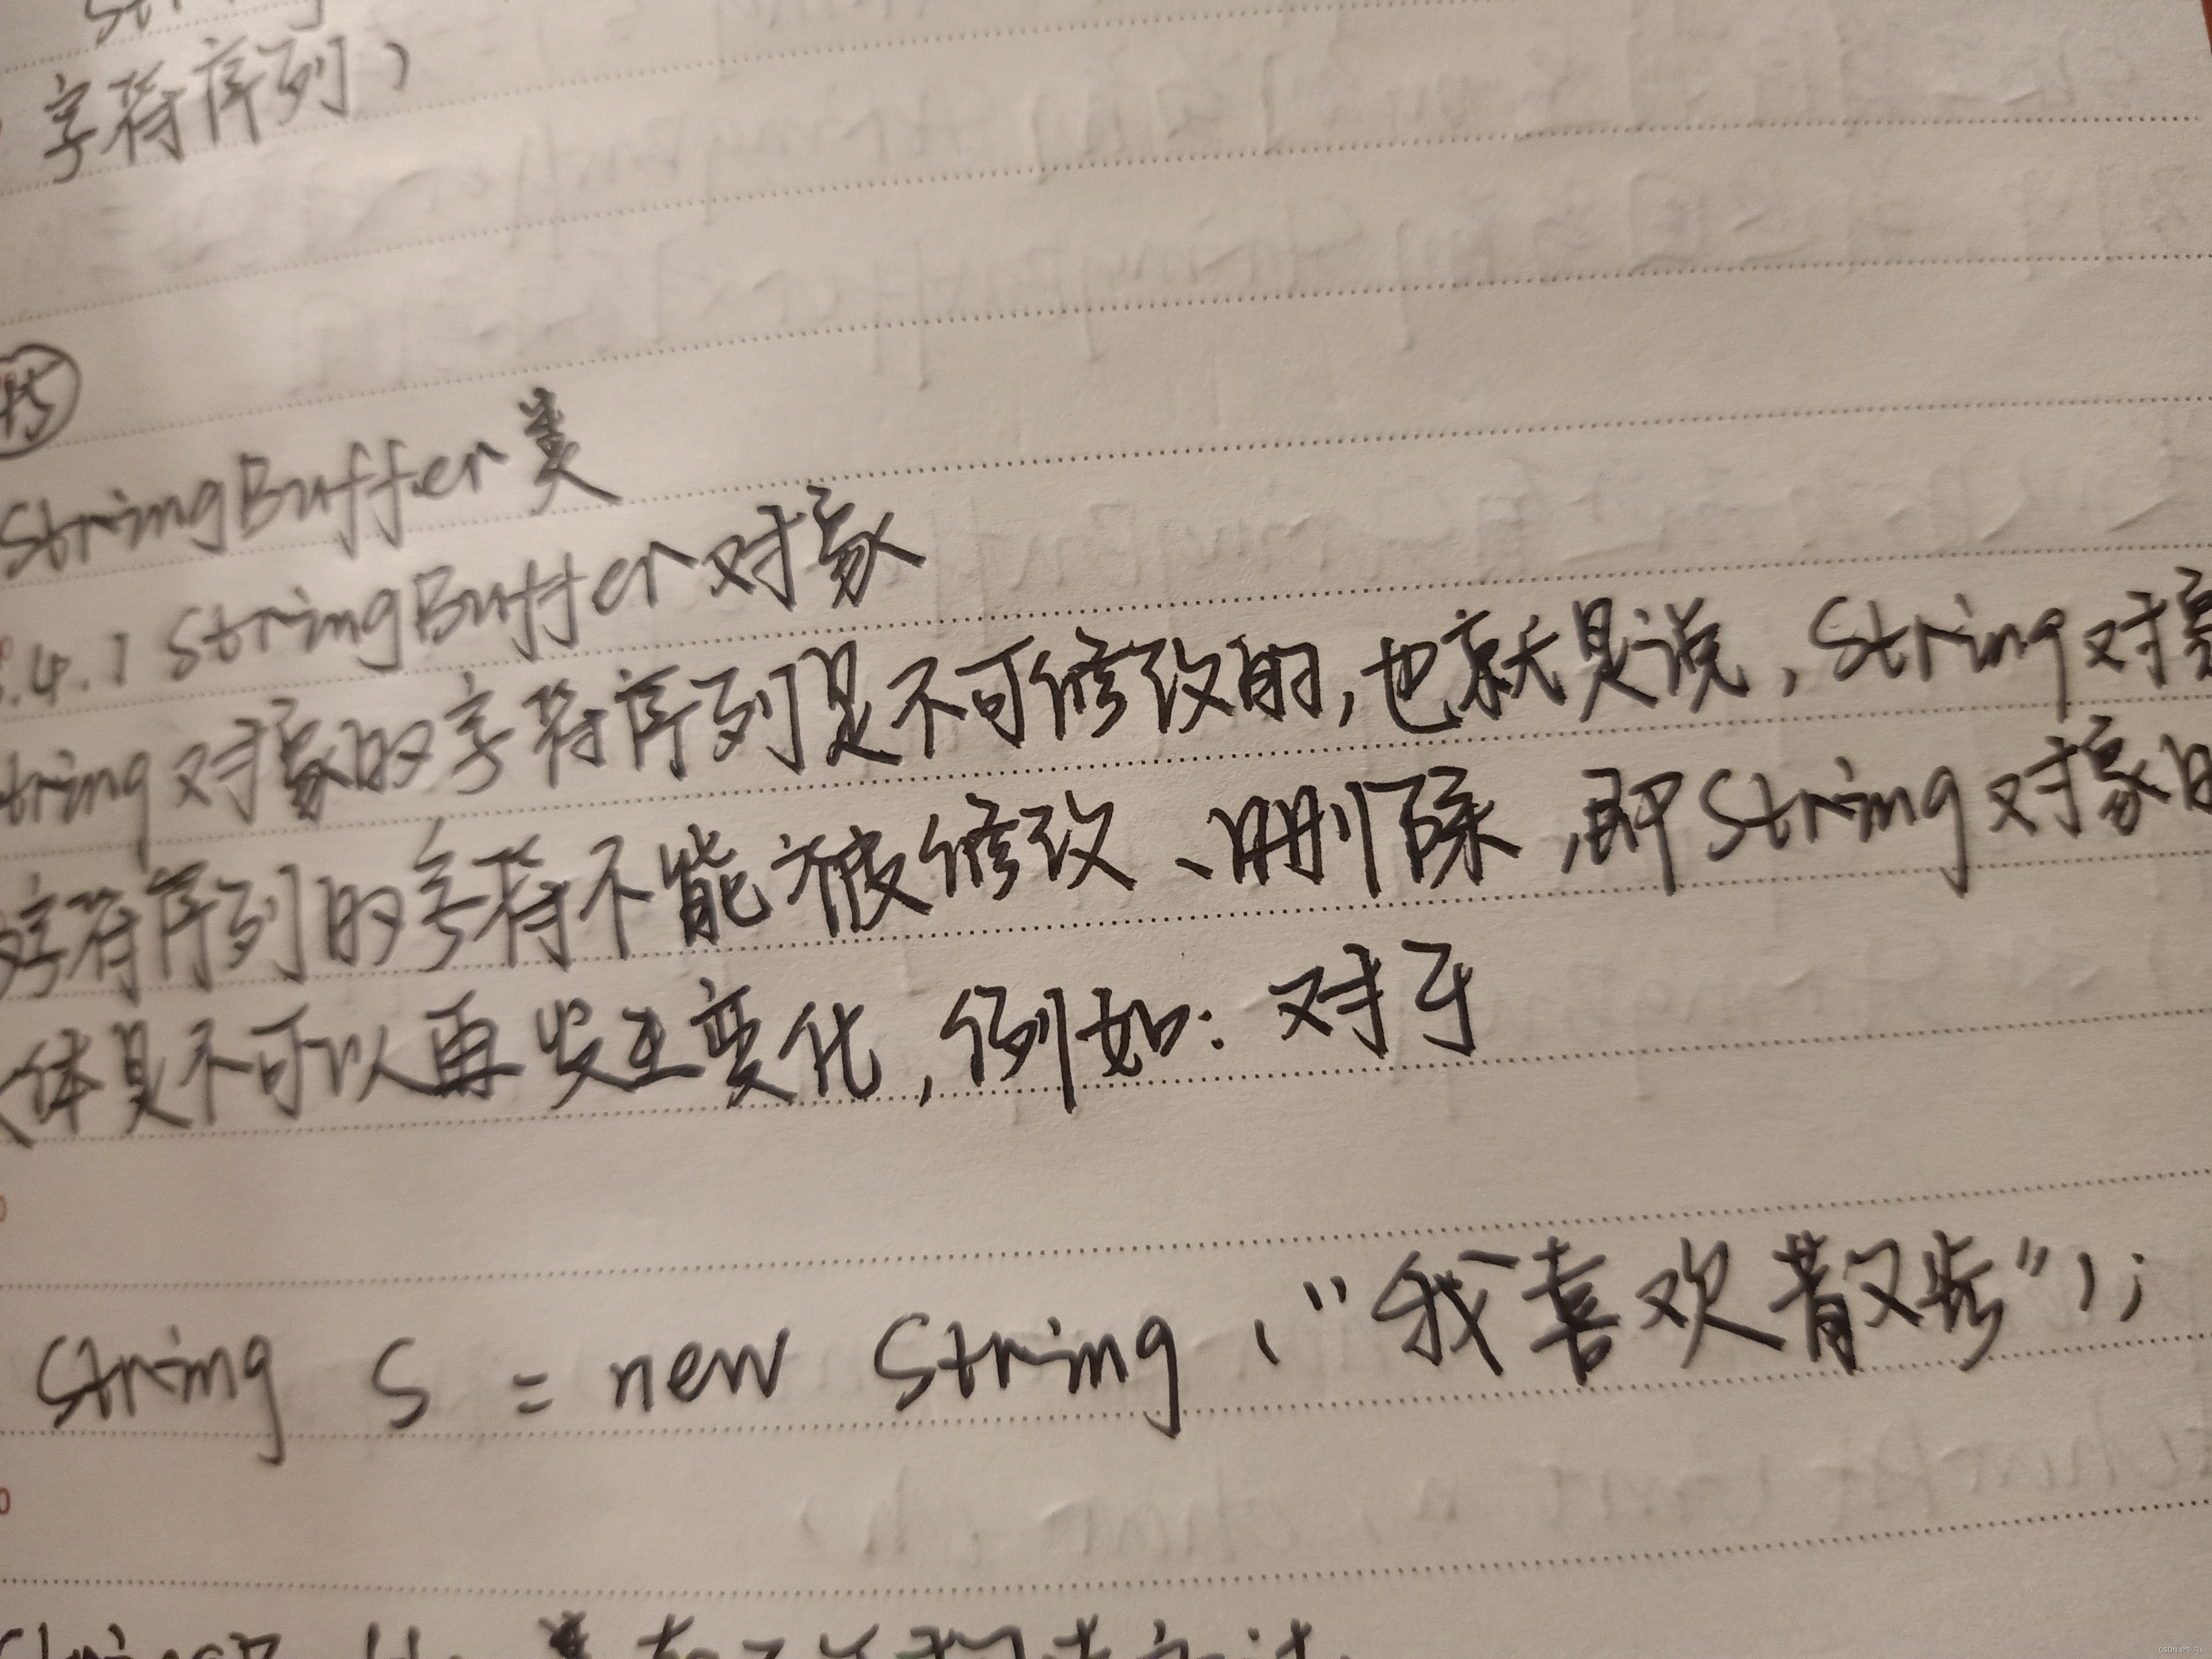 字符序列)
StringBuffer类
.4.1 StringBuffer对象
tring对象的字符序列是不可修改的,也就是说,String对象
字符序列的字符不能被修改、删除,即String对象
体是不可以再发生变化,例如:对于
String S = new String ("我喜欢散步");